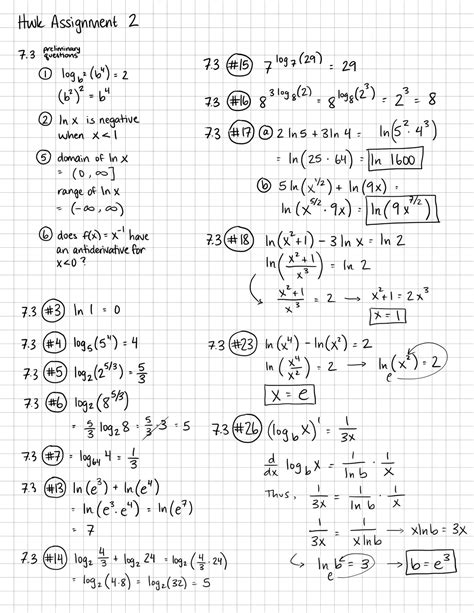 Hwk Assignment 2
7.3 preliminary questions
① log_b²(b⁴) = 2
(b²)² = b⁴
② ln x is negative
when x < 1
⑤ domain of ln x
= (0, ∞]
range of ln x
= (-∞, ∞)
⑥ does f(x) = x⁻¹ have
an antiderivative for
x<0 ?
7.3 #3 ln 1 = 0
7.3 #4 log₅(5⁴) = 4
7.3 #5 log₂(2^(5/3)) = 5/3
7.3 #6 log₂(8^(5/3))
= 5/3 log₂ 8 = 5/3 · 3 = 5
7.3 #7 = log₆₄ 4 = 1/3
7.3 #13 ln(e³) + ln(e⁴)
= ln(e³ · e⁴) = ln(e⁷)
= 7
7.3 #14 log₂ 4/3 + log₂ 24 = log₂(4/3 · 24)
= log₂(4·8) = log₂(32) = 5
7.3 #15 7^(log₇(29)) = 29
7.3 #16 8^(3 log₈(2)) = 8^(log₈(2³)) = 2³ = 8
7.3 #17 ⓐ 2 ln 5 + 3 ln 4 = ln(5² · 4³)
= ln(25 · 64) = ln 1600
ⓑ 5 ln(x^(1/2)) + ln(9x) =
ln(x^(5/2) · 9x) = ln(9x^(7/2))
7.3 #18 ln(x²+1) - 3 ln x = ln 2
ln((x²+1)/x³) = ln 2
(x²+1)/x³ = 2 → x²+1 = 2x³
x = 1
7.3 #23 ln(x⁴) - ln(x²) = 2
ln(x⁴/x²) = 2 → ln_e(x²) = 2
x = e
7.3 #26 (log_b x)' = 1/3x
d/dx log_b x = 1/ln b · 1/x
Thus, 1/3x = 1/ln b · 1/x
1/3x = 1/xlnb → xlnb = 3x
ln_e b = 3 → b = e³